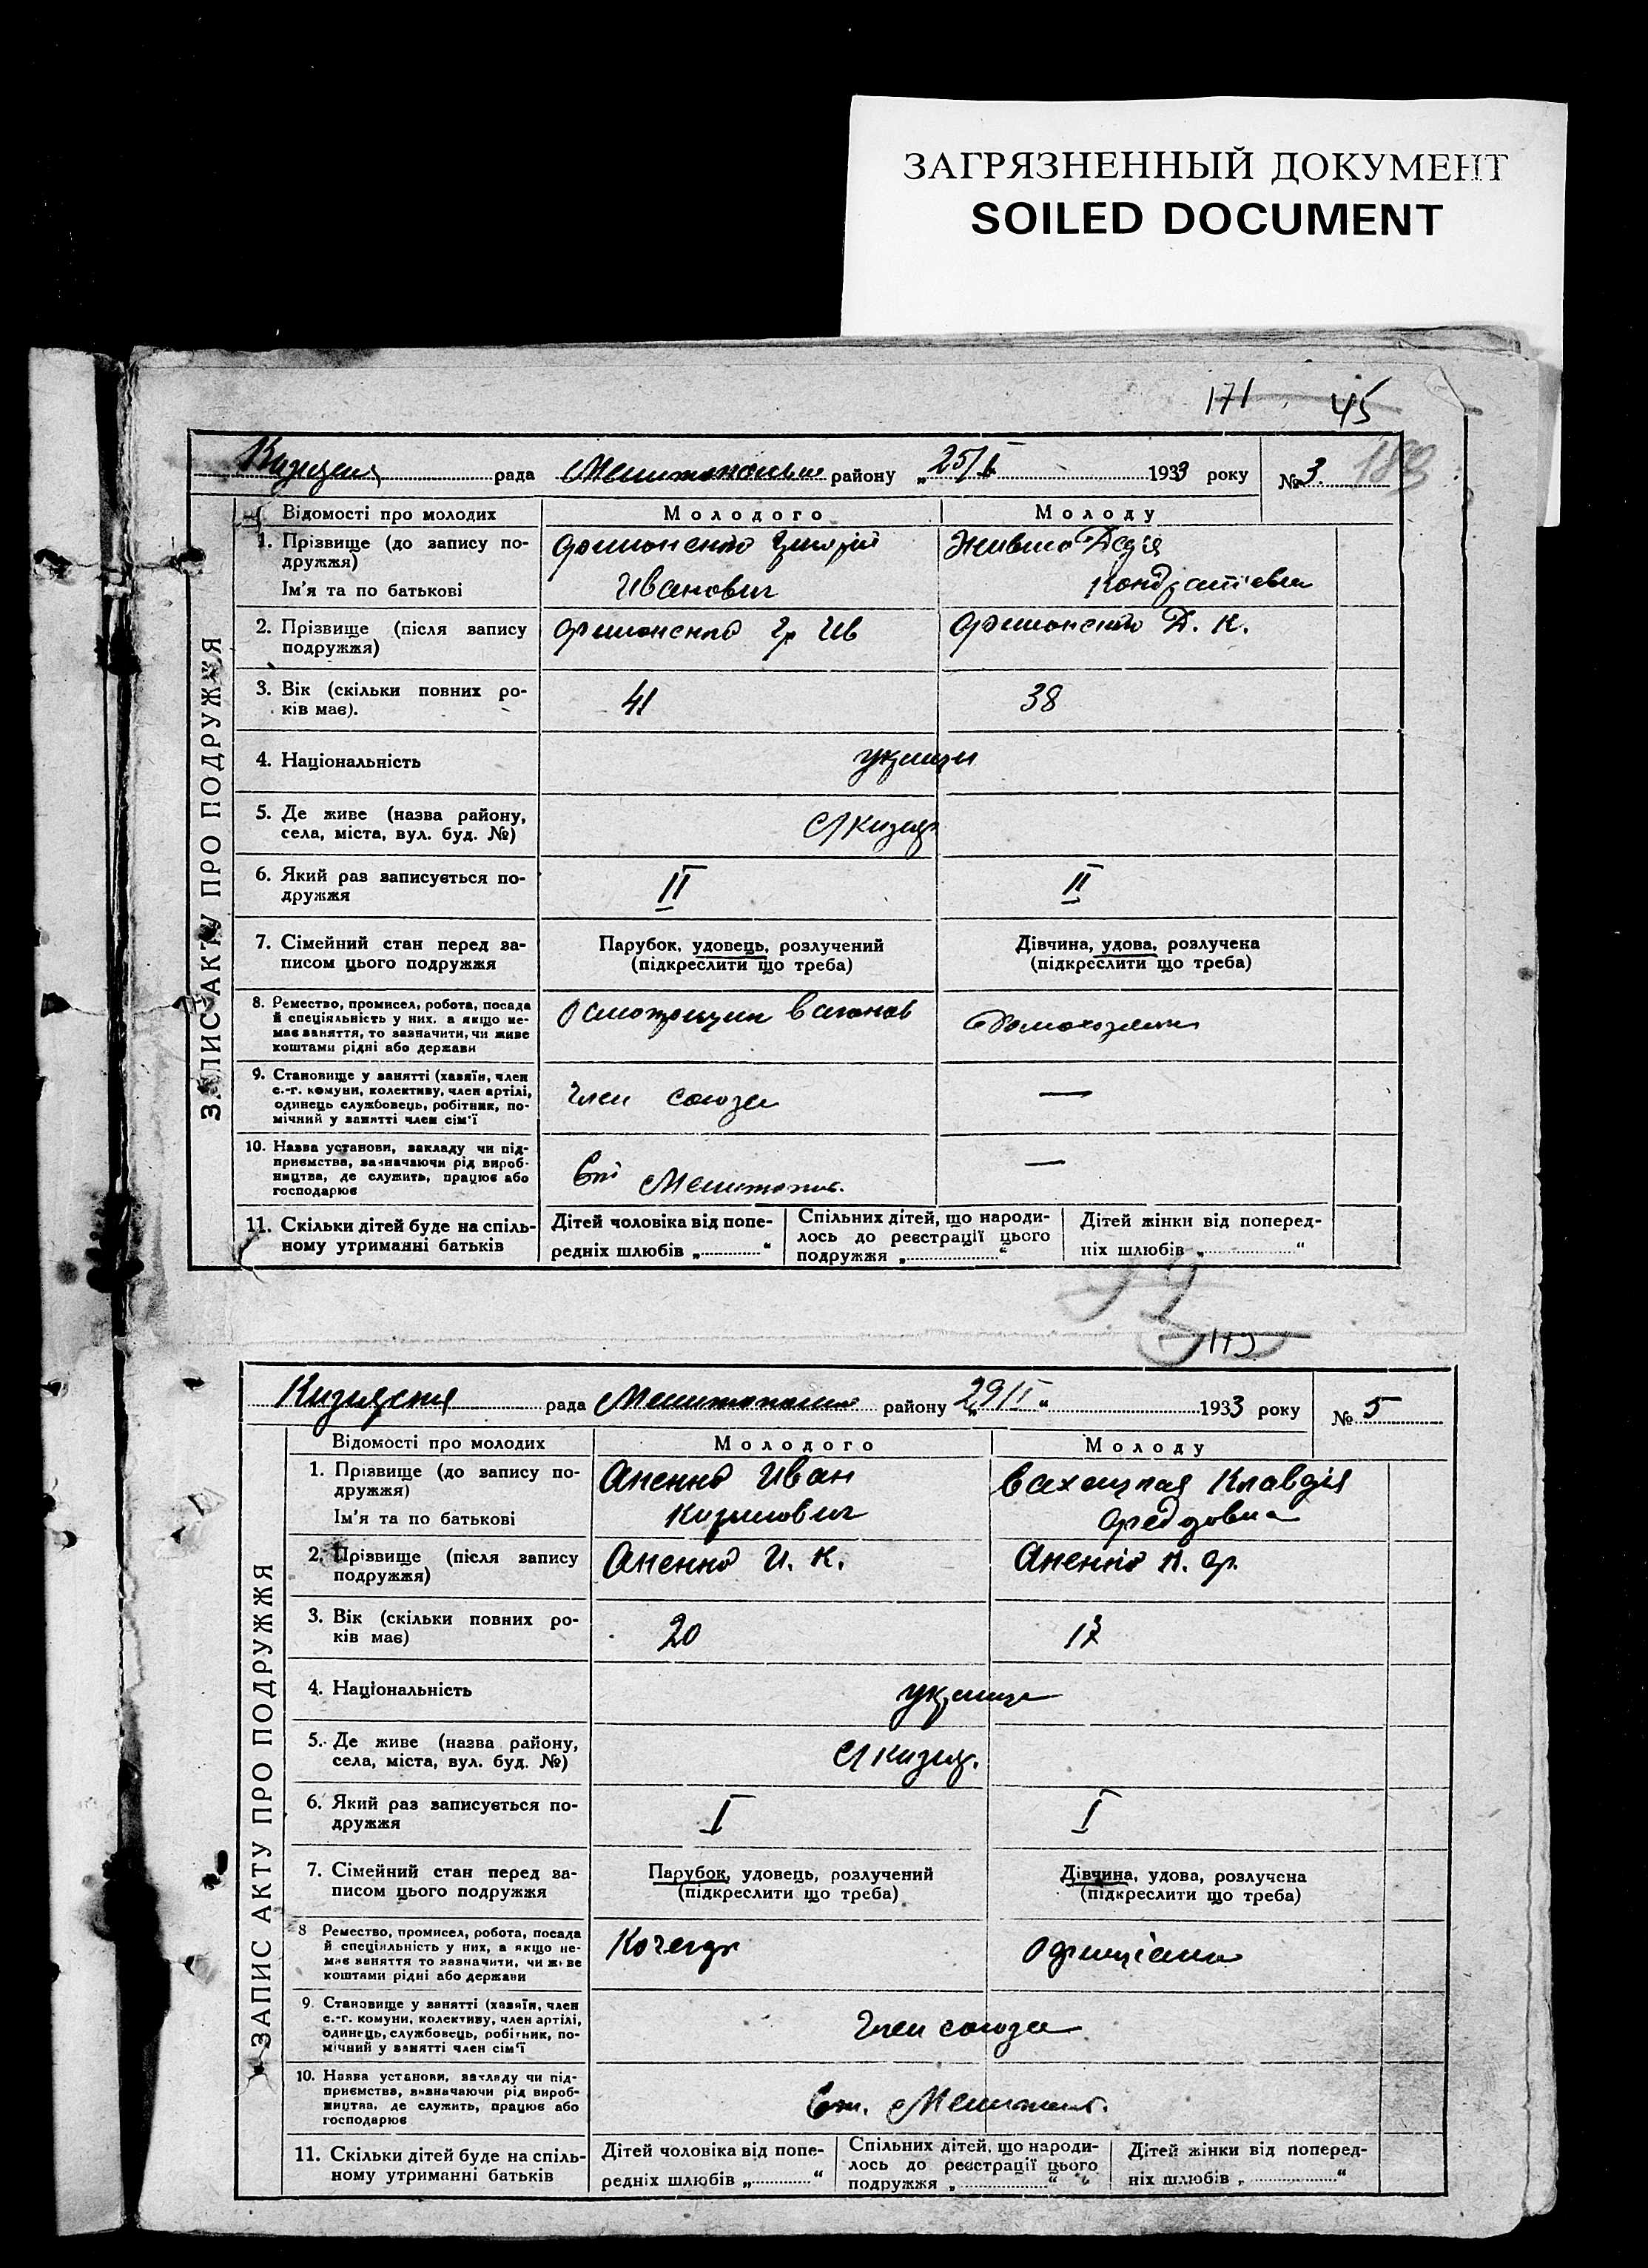 ЗАГРЯЗНЕННЫЙ ДОКУМЕНТ
SOILED DOCUMENT
171 45
рада району „25/I 1933 року №3. 183
ЗАПИС АКТУ ПРО ПОДРУЖЖЯ
Відомості про молодих Молодого Молоду
1. Прізвище (до запису по-
дружжя)
Ім'я та по батькові Иванович Кондратіевна
2. Прізвище (після запису
подружжя) Гр Ив Д. К.
3. Вік (скільки повних ро-
ків має). 41 38
4. Національність
5. Де живе (назва району,
села, міста, вул. буд. №) С/Кизияр
6. Який раз записується по-
дружжя II II
7. Сімейний стан перед за-
писом цього подружжя
Парубок, удовець, розлучений
(підкреслити що треба)
Дівчина, удова, розлучена
(підкреслити що треба)
8. Ремество, промисел, робота, посада
й спеціяльність у них, а якщо не-
має заняття, то зазначити, чи живе
коштами рідні або держави
Осмотрщик вагонов
9. Становище у занятті (хазяїн, член
с.-г. комуни, колективу, член артілі,
одинець службовець, робітник, по-
мічний у занятті член сім'ї
член союза —
10. Назва установи, закладу чи під-
приємства, зазначаючи рід вироб-
ництва, де служить, працює або
господарює
—
11. Скільки дітей буде на спіль-
ному утриманні батьків
Дітей чоловіка від попе-
редніх шлюбів „ “
Спільних дітей, що народи-
лось до реєстрації цього
подружжя „ “
Дітей жінки від поперед-
ніх шлюбів „ “
рада району „29/I“ 1933 року № 5
ЗАПИС АКТУ ПРО ПОДРУЖЖЯ
Відомості про молодих Молодого Молоду
1. Прізвище (до запису по-
дружжя) Аненко Иван Клавдія
Ім'я та по батькові Кирилович
2. Прізвище (після запису
подружжя) Аненко И. К. Аненко К.
3. Вік (скільки повних ро-
ків має) 20
4. Національність
5. Де живе (назва району,
села, міста, вул. буд. №) С/Кизияр.
6. Який раз записується по-
дружжя I I
7. Сімейний стан перед за-
писом цього подружжя
Парубок, удовець, розлучений
(підкреслити що треба)
Дівчина, удова, розлучена
(підкреслити що треба)
8 Ремество, промисел, робота, посада
й спеціяльність у них, а якщо не-
має заняття то зазначити, чи живе
коштами рідні або держави
Кочегар
9. Становище у занятті (хазяїн, член
с.-г. комуни, колективу, член артілі,
одинець, службовець, робітник, по-
мічний у занятті член сім'ї
Член союза
10. Назва установи, закладу чи під-
приємства, зазначаючи рід вироб-
ництва, де служить, працює або
господарює
11. Скільки дітей буде на спіль-
ному утриманні батьків
Дітей чоловіка від попе-
редніх шлюбів „ “
Спільних дітей, що народи-
лось до реєстрації цього
подружжя „ “
Дітей жінки від поперед-
ніх шлюбів „ “